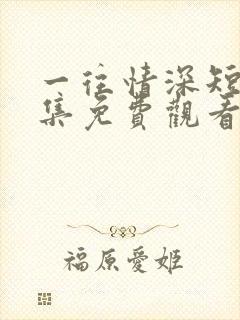 一往情深短
集免費觀看
福原愛姬